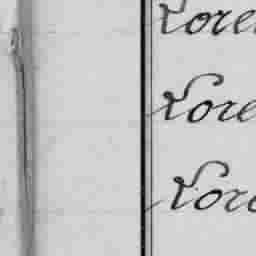 Lore
Lore
Lore